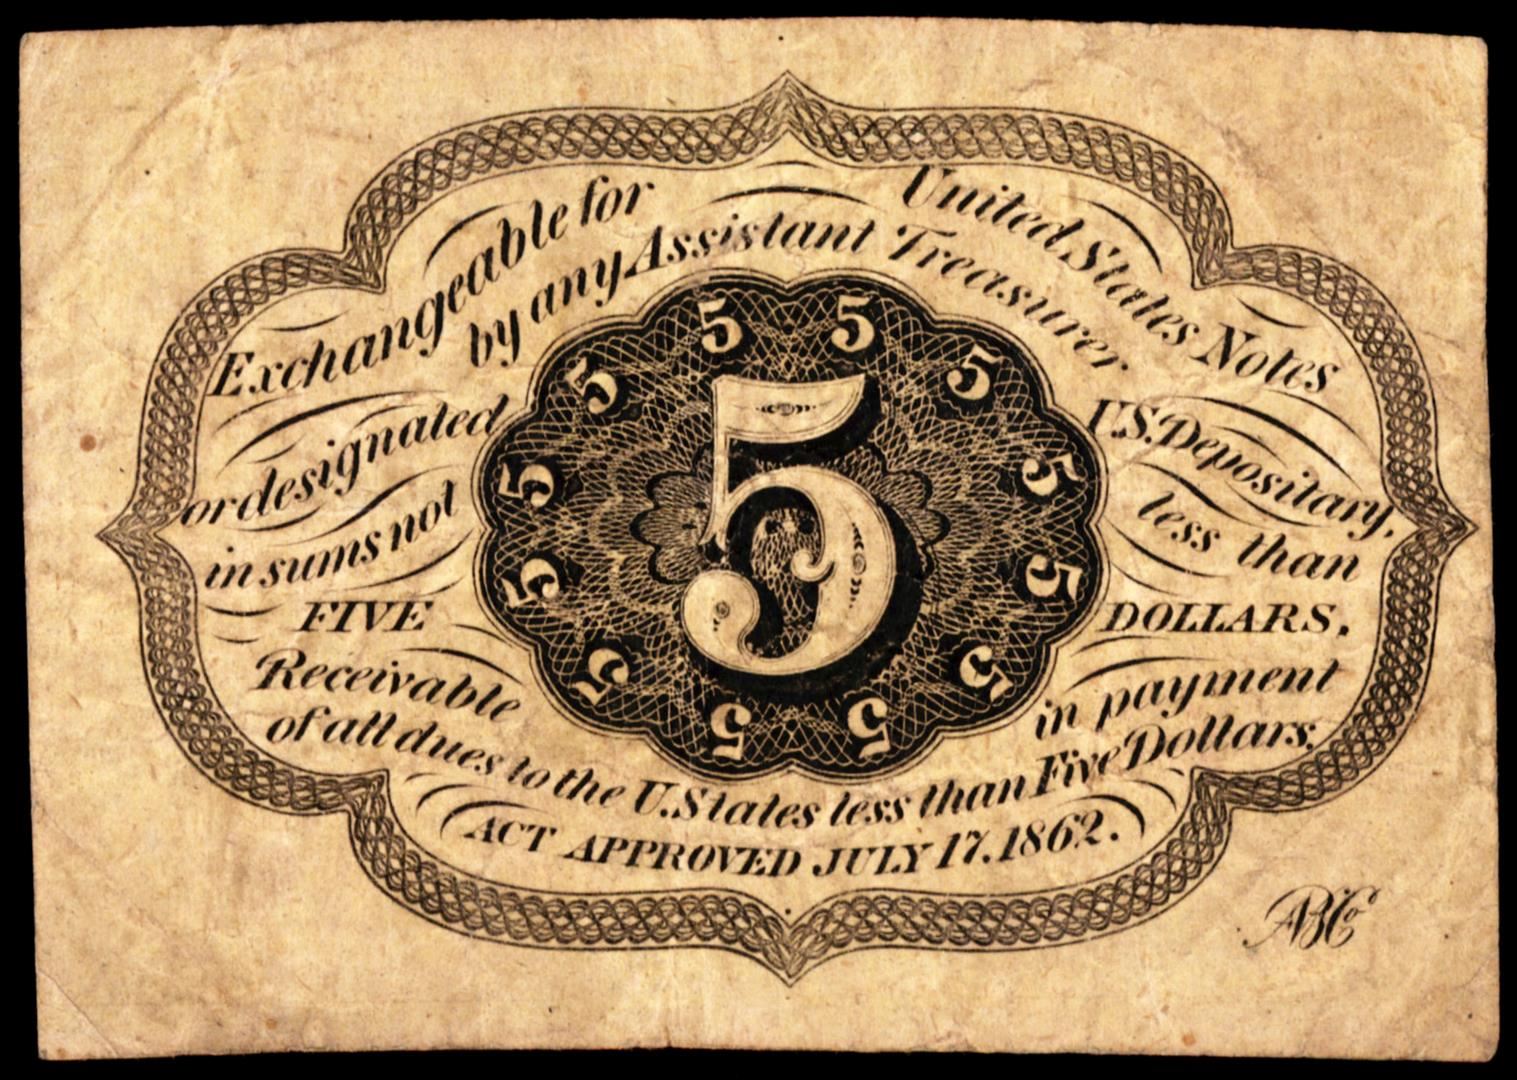 Exchangeable for United States Notes
by any Assistant Treasurer
or designated U.S. Depositary,
in sums not less than
FIVE DOLLARS.
Receivable in payment
of all dues to the U. States less than Five Dollars.
ACT APPROVED JULY 17. 1862.
5
5
5
5
5
5
5
5
5
5
5
5
5
ABCo